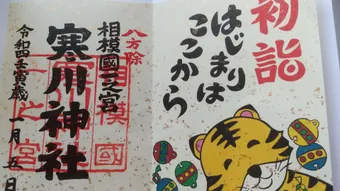 初詣
はじまりは
ここから
八方除
相模國一之宮
寒川神社
令和四壬寅歳 一月五日
相模國
一之宮